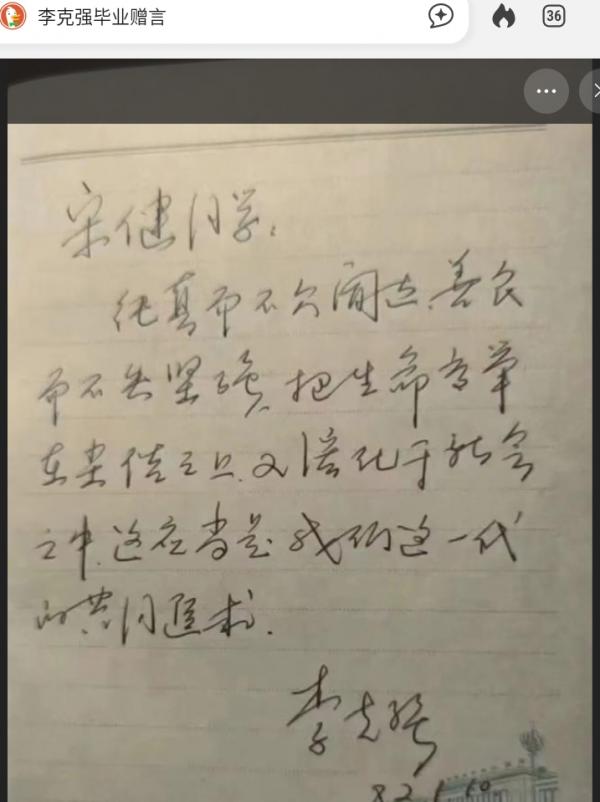 李克强毕业赠言
36
宋健同学:
纯真而不欠阔达、善良
而不失坚强,把生命高举
在尘俗之上,又溶化于社会
之中,这应当是我们这一代
的共同追求.
李克强
82.1.10